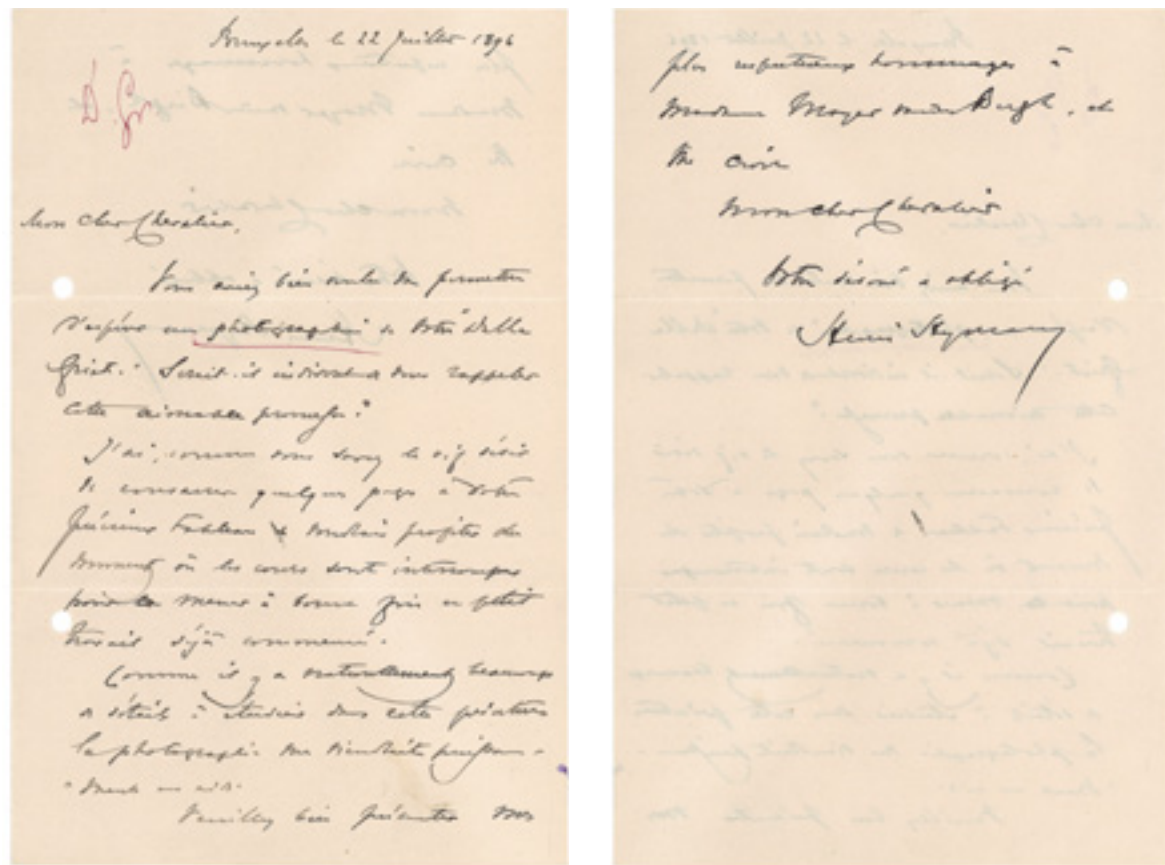 Bruxelles le 22 Juillet 1896
D. Gr
Mon cher Chevalier,
Vous aviez bien voulu me permettre
d'espérer une photographie de votre "Dulle
Griet." Serait-il indiscret de vous rappeler
cette aimable promesse?
J'ai, comme vous savez le vif désir
de consacrer quelques pages à votre
précieux tableau & voudrais profiter du
moment où les cours sont interrompus
pour mener à bonne fin ce petit
travail déjà commencé.
Comme il y a naturellement beaucoup
de détails à étudier dans cette peinture
la photographie me viendrait puissam-
-ment en aide.
Veuillez bien présenter mes
plus respectueux hommages à
Madame Mayer van den Bergh, et
me croire
Mon cher Chevalier
Votre dévoué & obligé
Henri Hymans